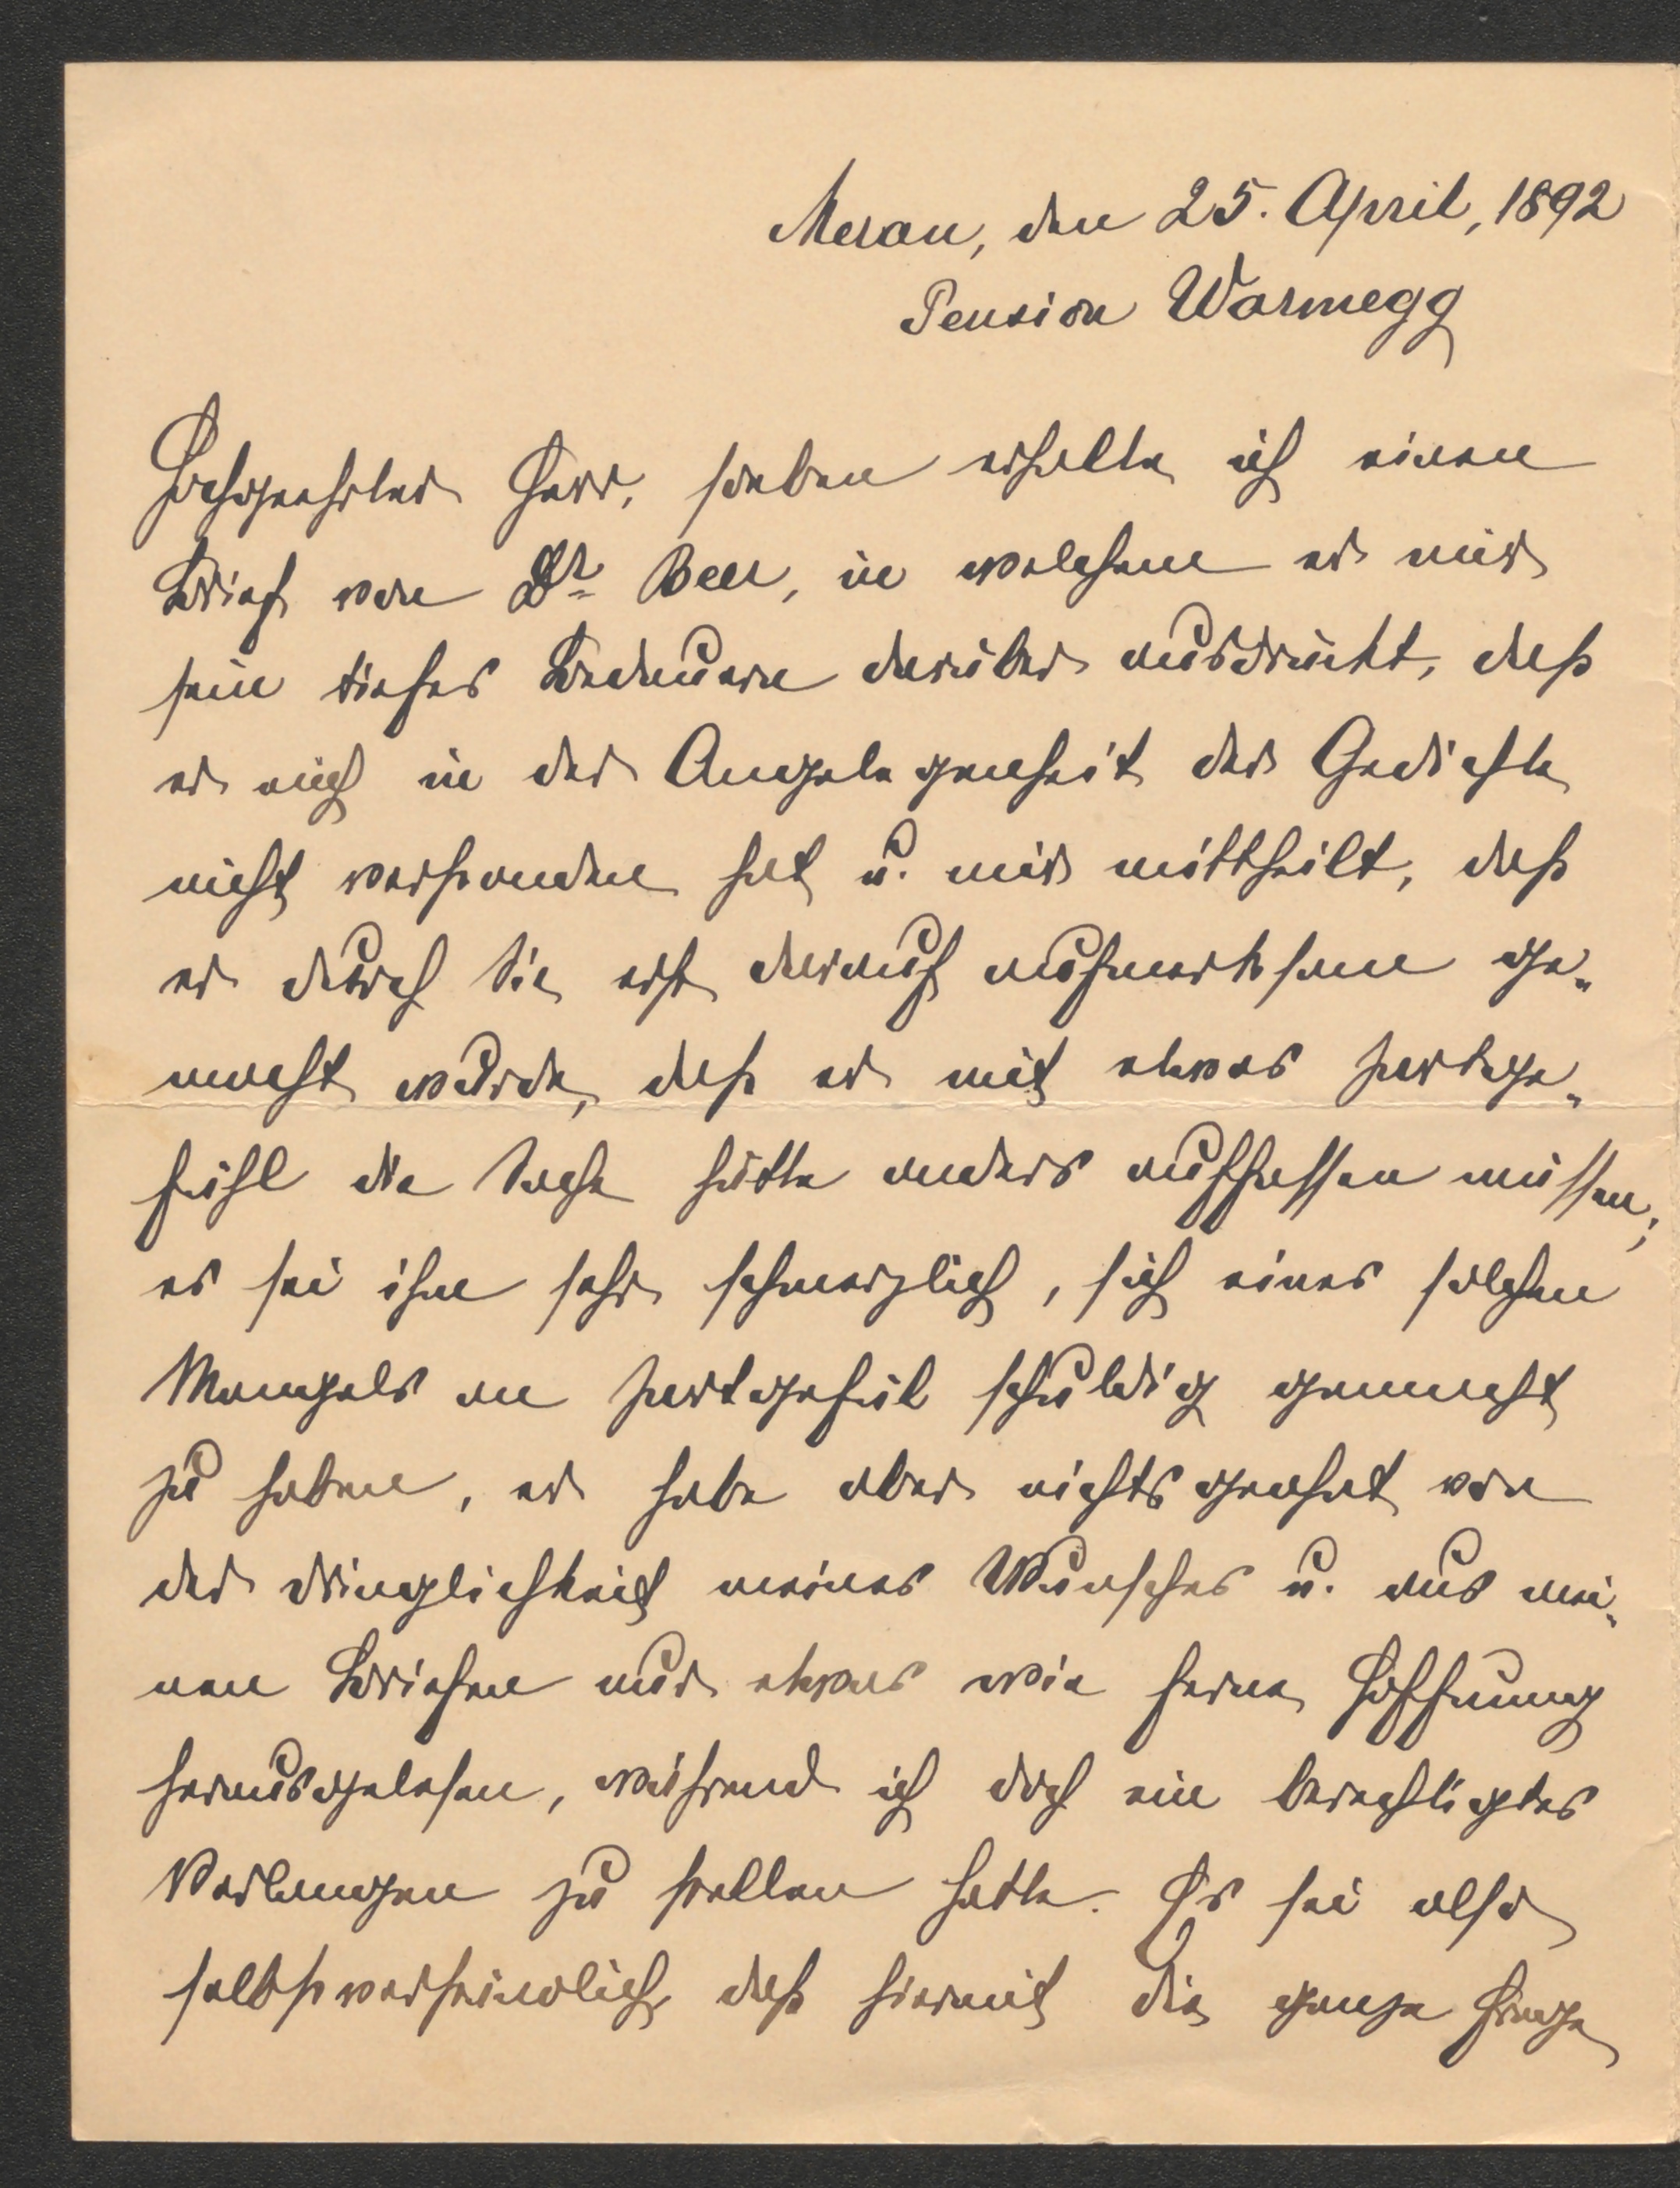 Meran, den 25. April, 1892
Pension Warmegg
Hochgeehrter Herr, soeben erhalte ich einen
Brief von Dr Beer, in welchem er mir
sein tiefes Bedauern darüber ausdrückt, daß
er mich in der Angelegenheit der Gedichte
nicht verstanden hat u. mir mittheilt, daß
er durch Sie erst darauf aufmerksam ge-
macht wurde, daß er mit etwas Zartge-
fühl die Sache hätte anders auffassen müssen;
es sei ihm sehr schmerzlich, sich eines solchen
Mangels an Zartgefül schuldig gemacht
zu haben, er habe aber nichts geahnt von
der Dringlichkeit meines Wunsches u. aus mei-
nen Briefen nur etwas wie ferne Hoffnung
herausgelesen, während ich doch ein berechtigtes
Verlangen zu stellen hatte. Es sei also
selbstverständlich, daß hiermit die ganze Frage